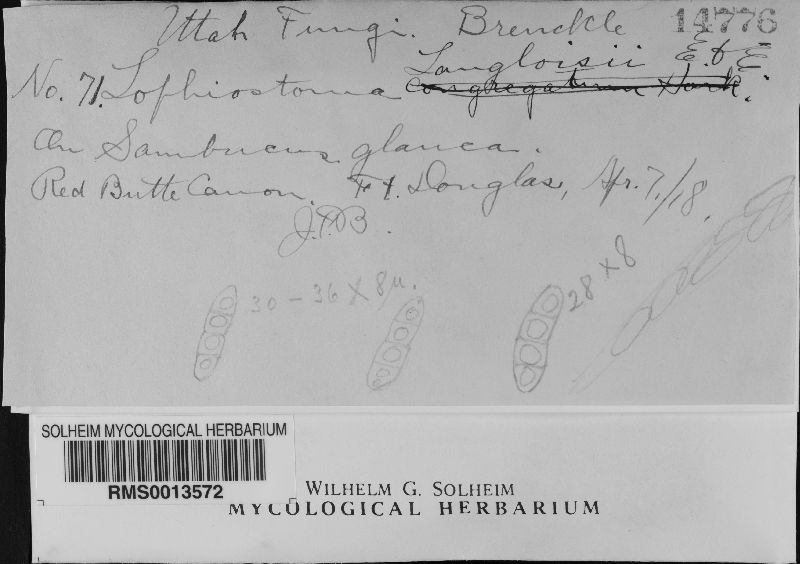 Utah Fungi. Brenckle 14776
Langloisii E. & E.
No. 71. Lophiostoma congregatum Hark.
On Sambucus glauca.
Red Butte Canon, Ft. Douglas, Apr. 7,/18.
30 - 36 X 8 µ.
28 x 8
SOLHEIM MYCOLOGICAL HERBARIUM
RMS0013572
WILHELM G. SOLHEIM
MYCOLOGICAL HERBARIUM